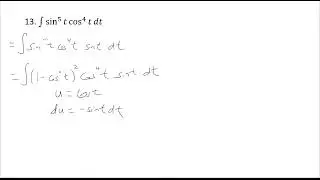 13. ∫ sin⁵ t cos⁴ t dt
= ∫ sin⁴ t cos⁴ t sint dt
= ∫ (1-cos² t)² cos⁴ t sint dt
u = cost
du = -sint dt